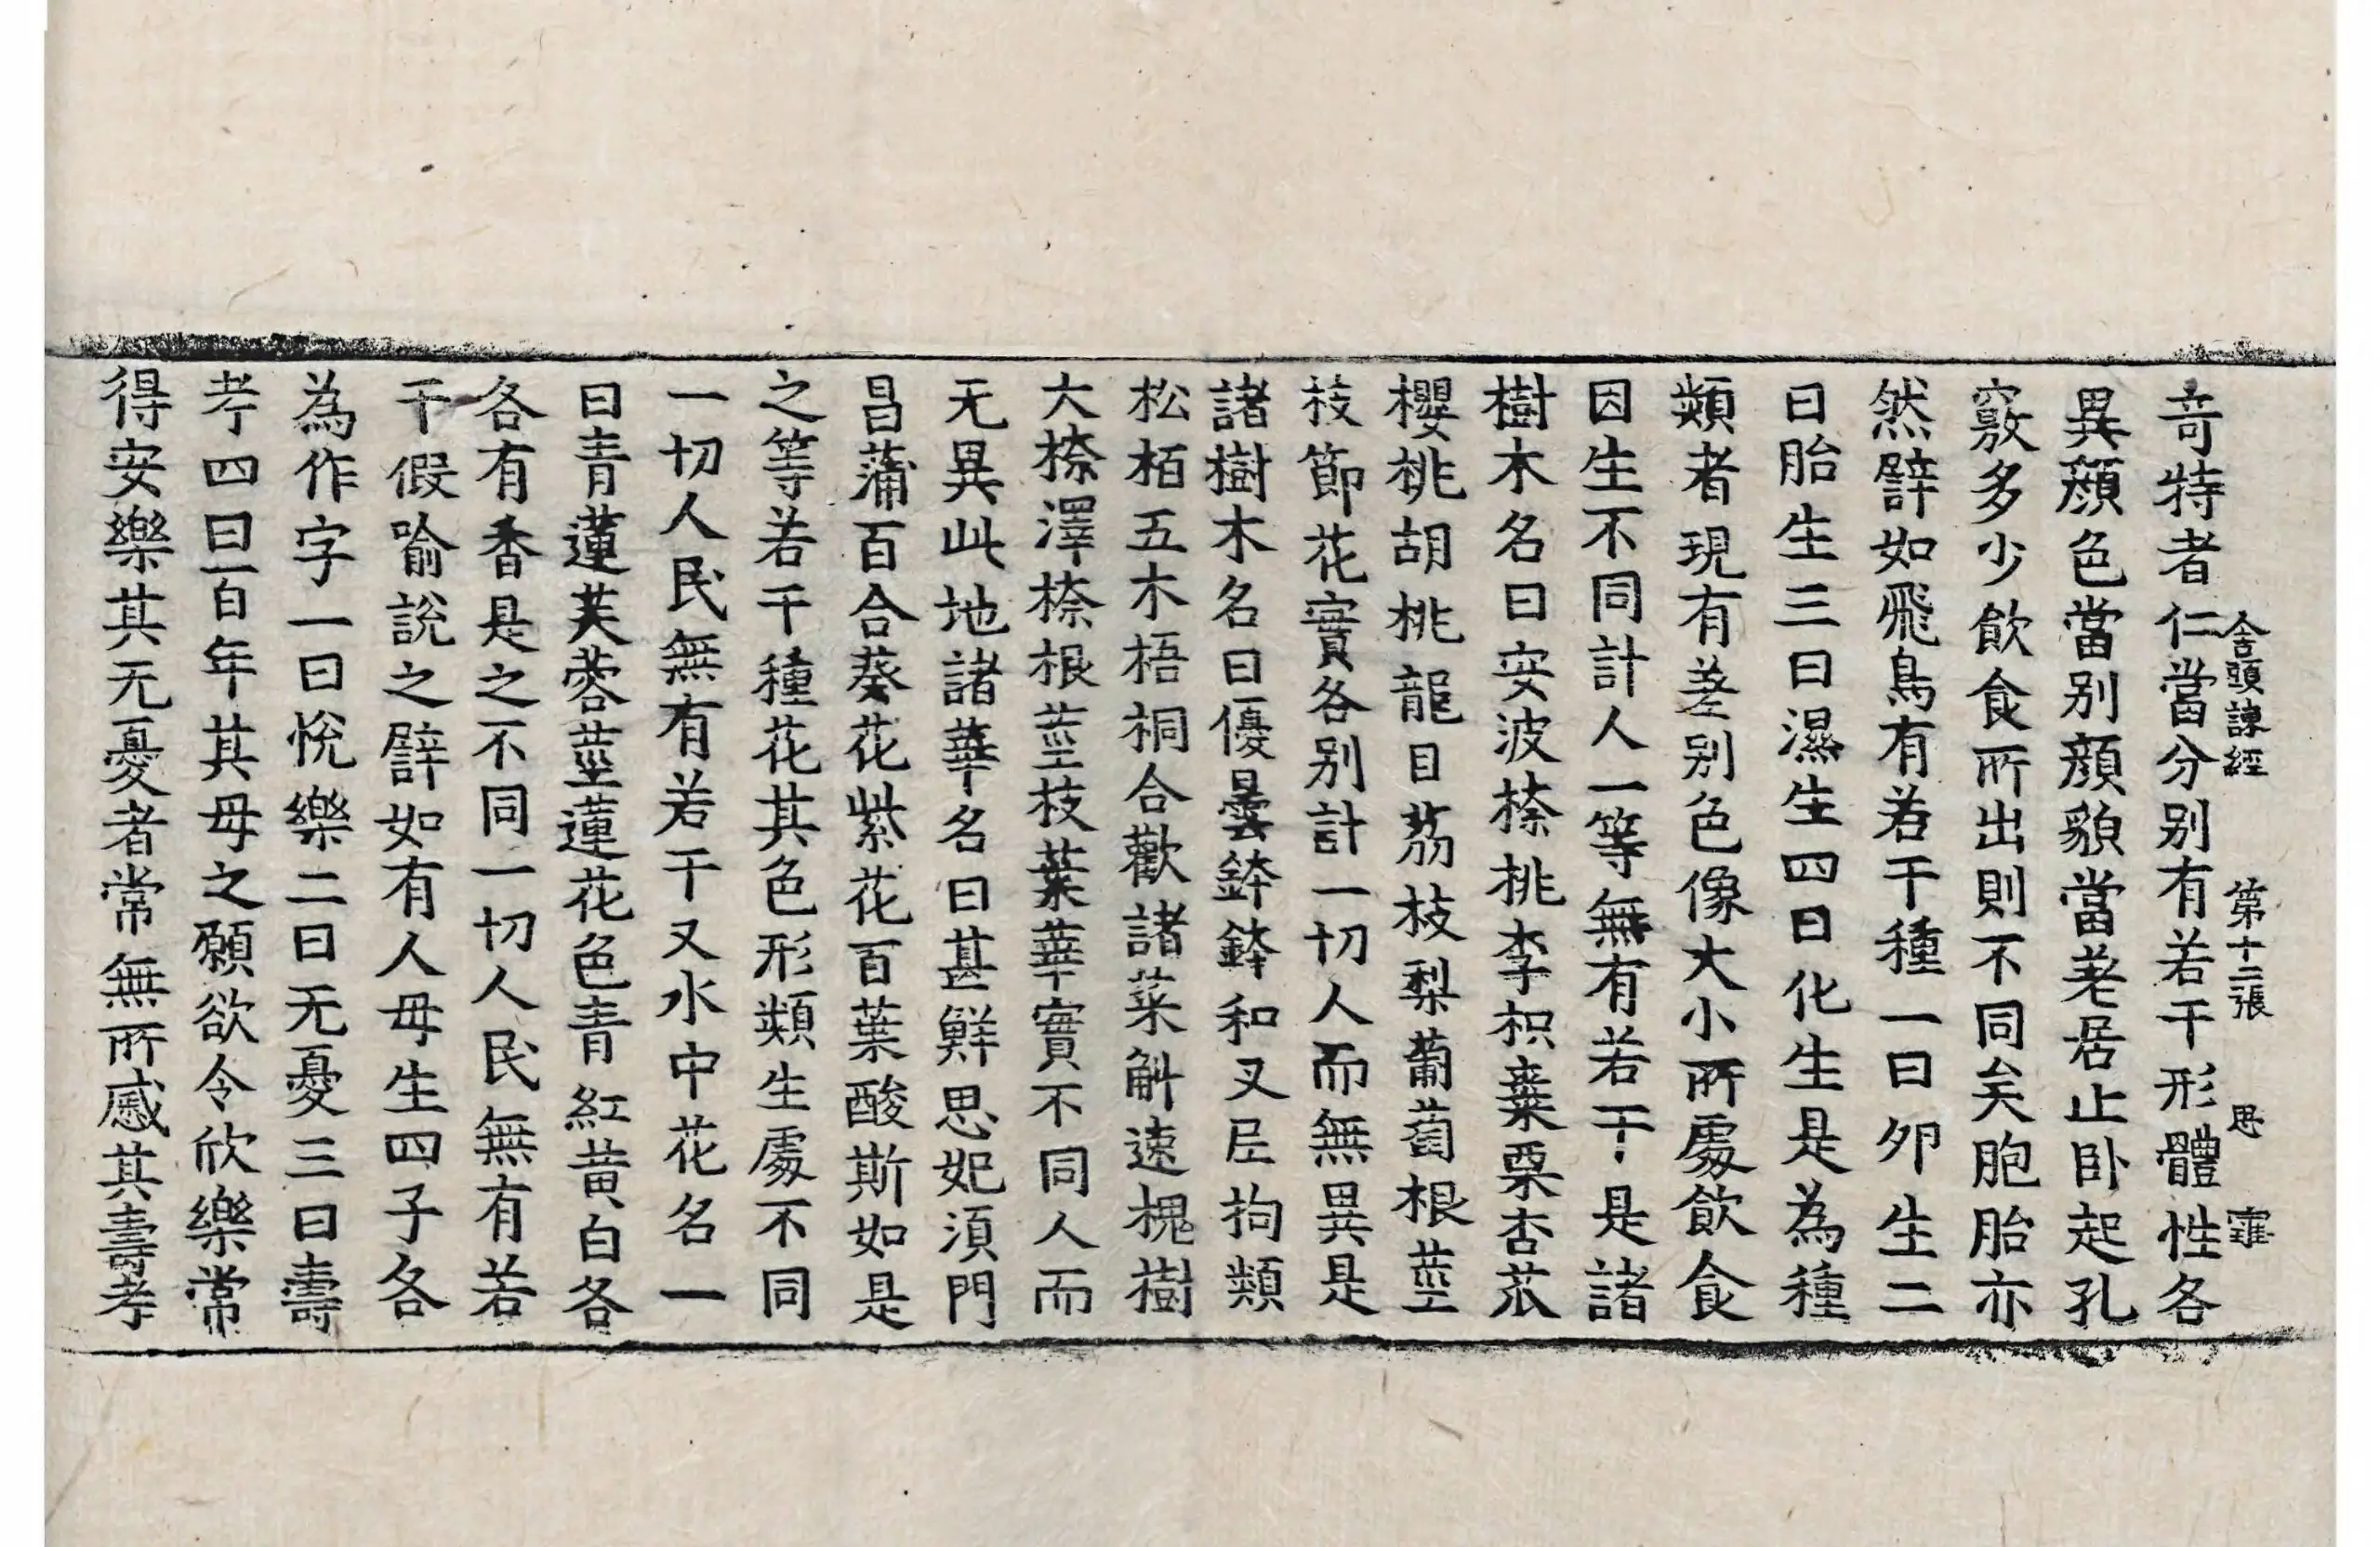 舎頭諫經 第十二張 思 寉
竒特者仁當分别有若干形體性各
異顔色當别顔貌當老居止卧起孔
竅多少飲食所出則不同矣胞胎亦
然譬如飛鳥有若干種一曰卵生二
曰胎生三曰濕生四曰化生是為種
類者現有差别色像大小所處飲食
因生不同計人一等無有若干是諸
樹木名曰安波㮈桃李枳棗栗杏苽
櫻桃胡桃龍目茘枝梨葡萄根莖
枝節花實各别計一切人而無異是
諸樹木名曰優曇鉢鉢和叉𡰱拘類
松栢五木梧桐合歡諸菜斛速槐樹
大㮈澤㮈根莖枝葉華實不同人而
无異此地諸華名曰甚鮮思妃湏門
昌蒲百合葵花紫花百葉酸斯如是
之等若干種花其色形類生處不同
一切人民無有若干又水中花名一
曰青蓮芙蓉莖蓮花色青紅黄白各
各有香是之不同一切人民無有若
干假喻説之譬如有人母生四子各
為作字一曰恱樂二曰无憂三曰壽
考四曰百年其母之願欲令欣樂常
得安樂其无憂者常無所慼其壽考